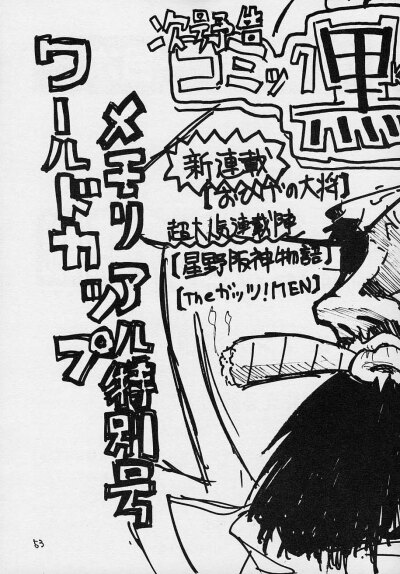 次号予告
コミック黒
新連載
の大将】
超大人気連載陣
【星野阪神物語】
【Theガッツ!MEN】
ワールドカップ
メモリアル特別号
53